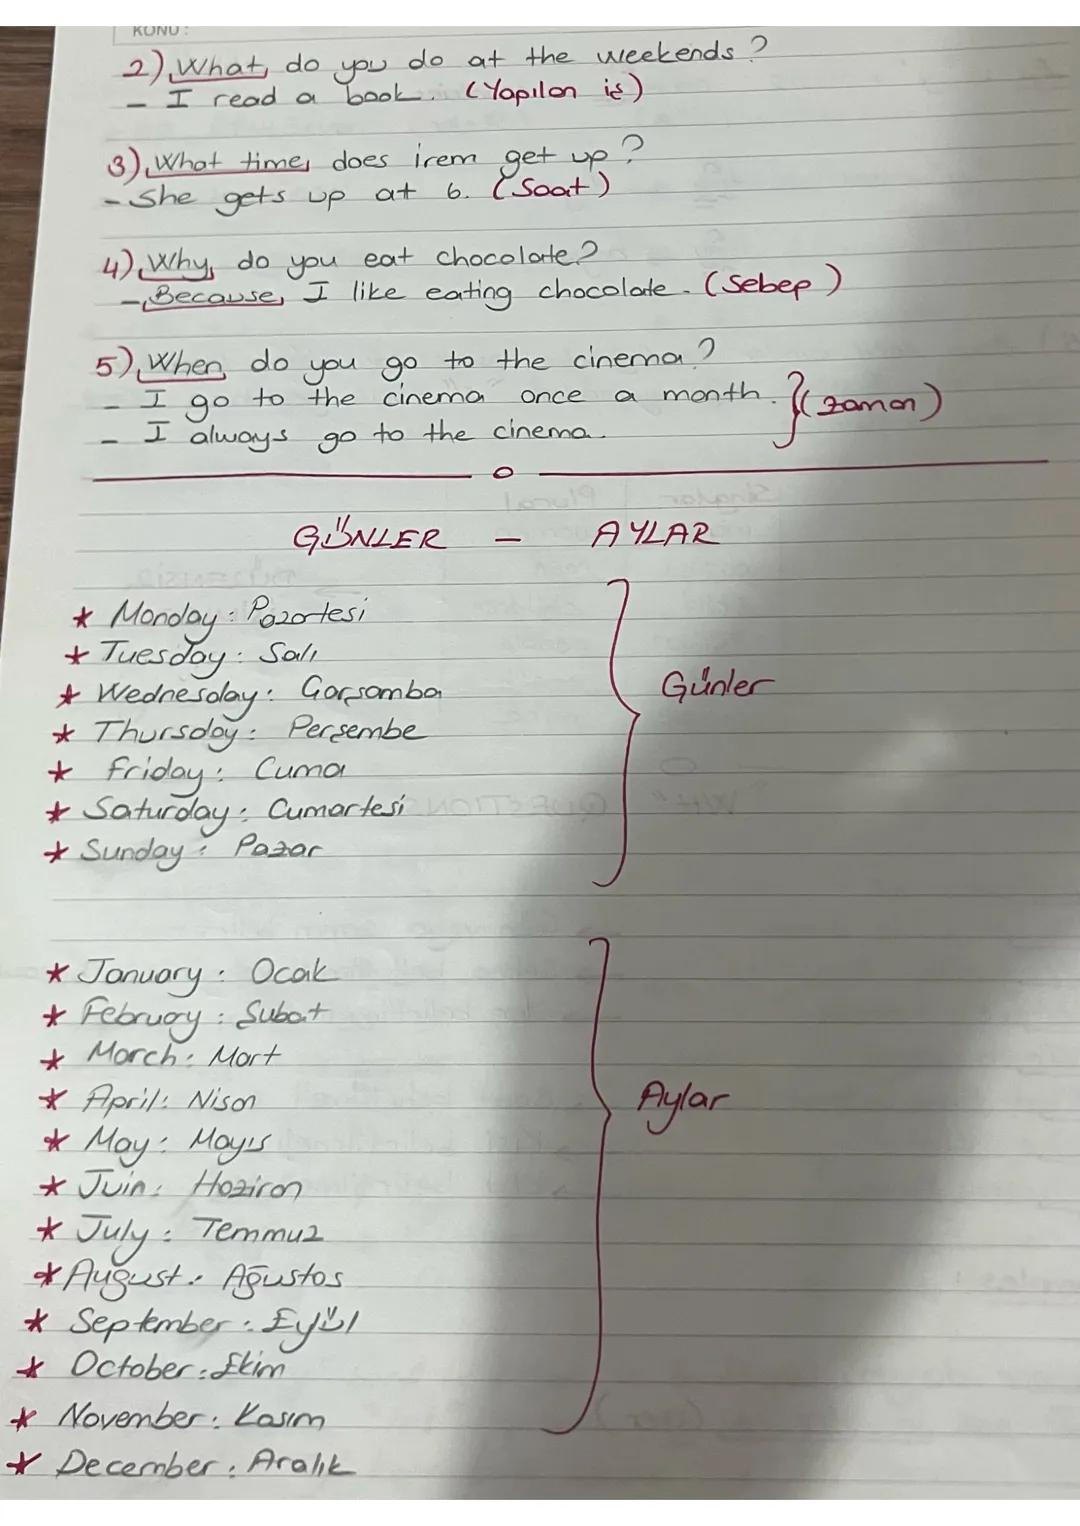 KONU:
2) What do you do at the weekends?
- I read a book. (Yapılan iş)
3) What time does irem get up?
- She gets up at 6. (Saat)
4) Why do you eat chocolate?
- Because I like eating chocolate. (Sebep)
5) When do you go to the cinema?
- I go to the cinema once a month.
- I always go to the cinema.
(zaman)
GÜNLER - AYLAR
* Monday: Pazartesi
* Tuesday: Salı
* Wednesday: Çarşamba
* Thursday: Perşembe
* Friday: Cuma
* Saturday: Cumartesi
* Sunday: Pazar
Günler
* January: Ocak
* February: Şubat
* March: Mart
* April: Nisan
* May: Mayıs
* Juin: Haziran
* July: Temmuz
* August: Ağustos
* September: Eylül
* October: Ekim
* November: Kasım
* December: Aralık
Aylar